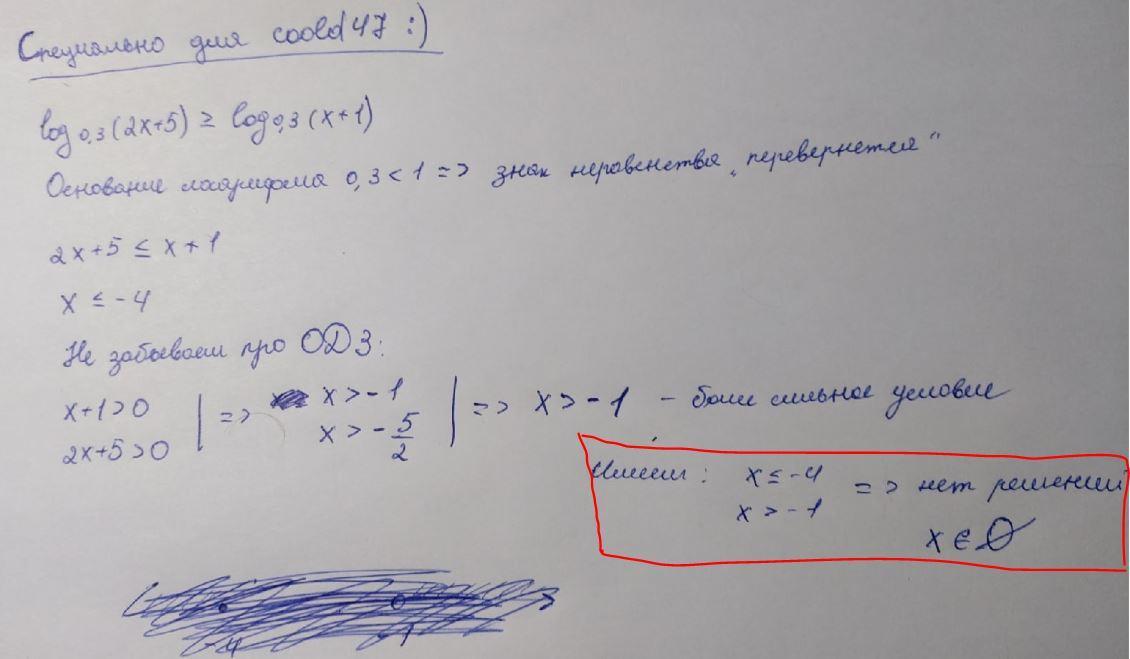 Специально для coold47 :)
log₀,₃(2x+5) ≥ log₀,₃(x+1)
Основание логарифма 0,3 < 1 => знак неравенства „перевернется"
2x+5 ≤ x+1
x ≤ -4
Не забываем про ОДЗ:
x+1>0 | => x > -1 | => x > -1 - более сильное условие
2x+5>0 | x > -5/2 |
Имеем: x ≤ -4 => нет решений
x > -1
x ∈ ∅
-4 -1